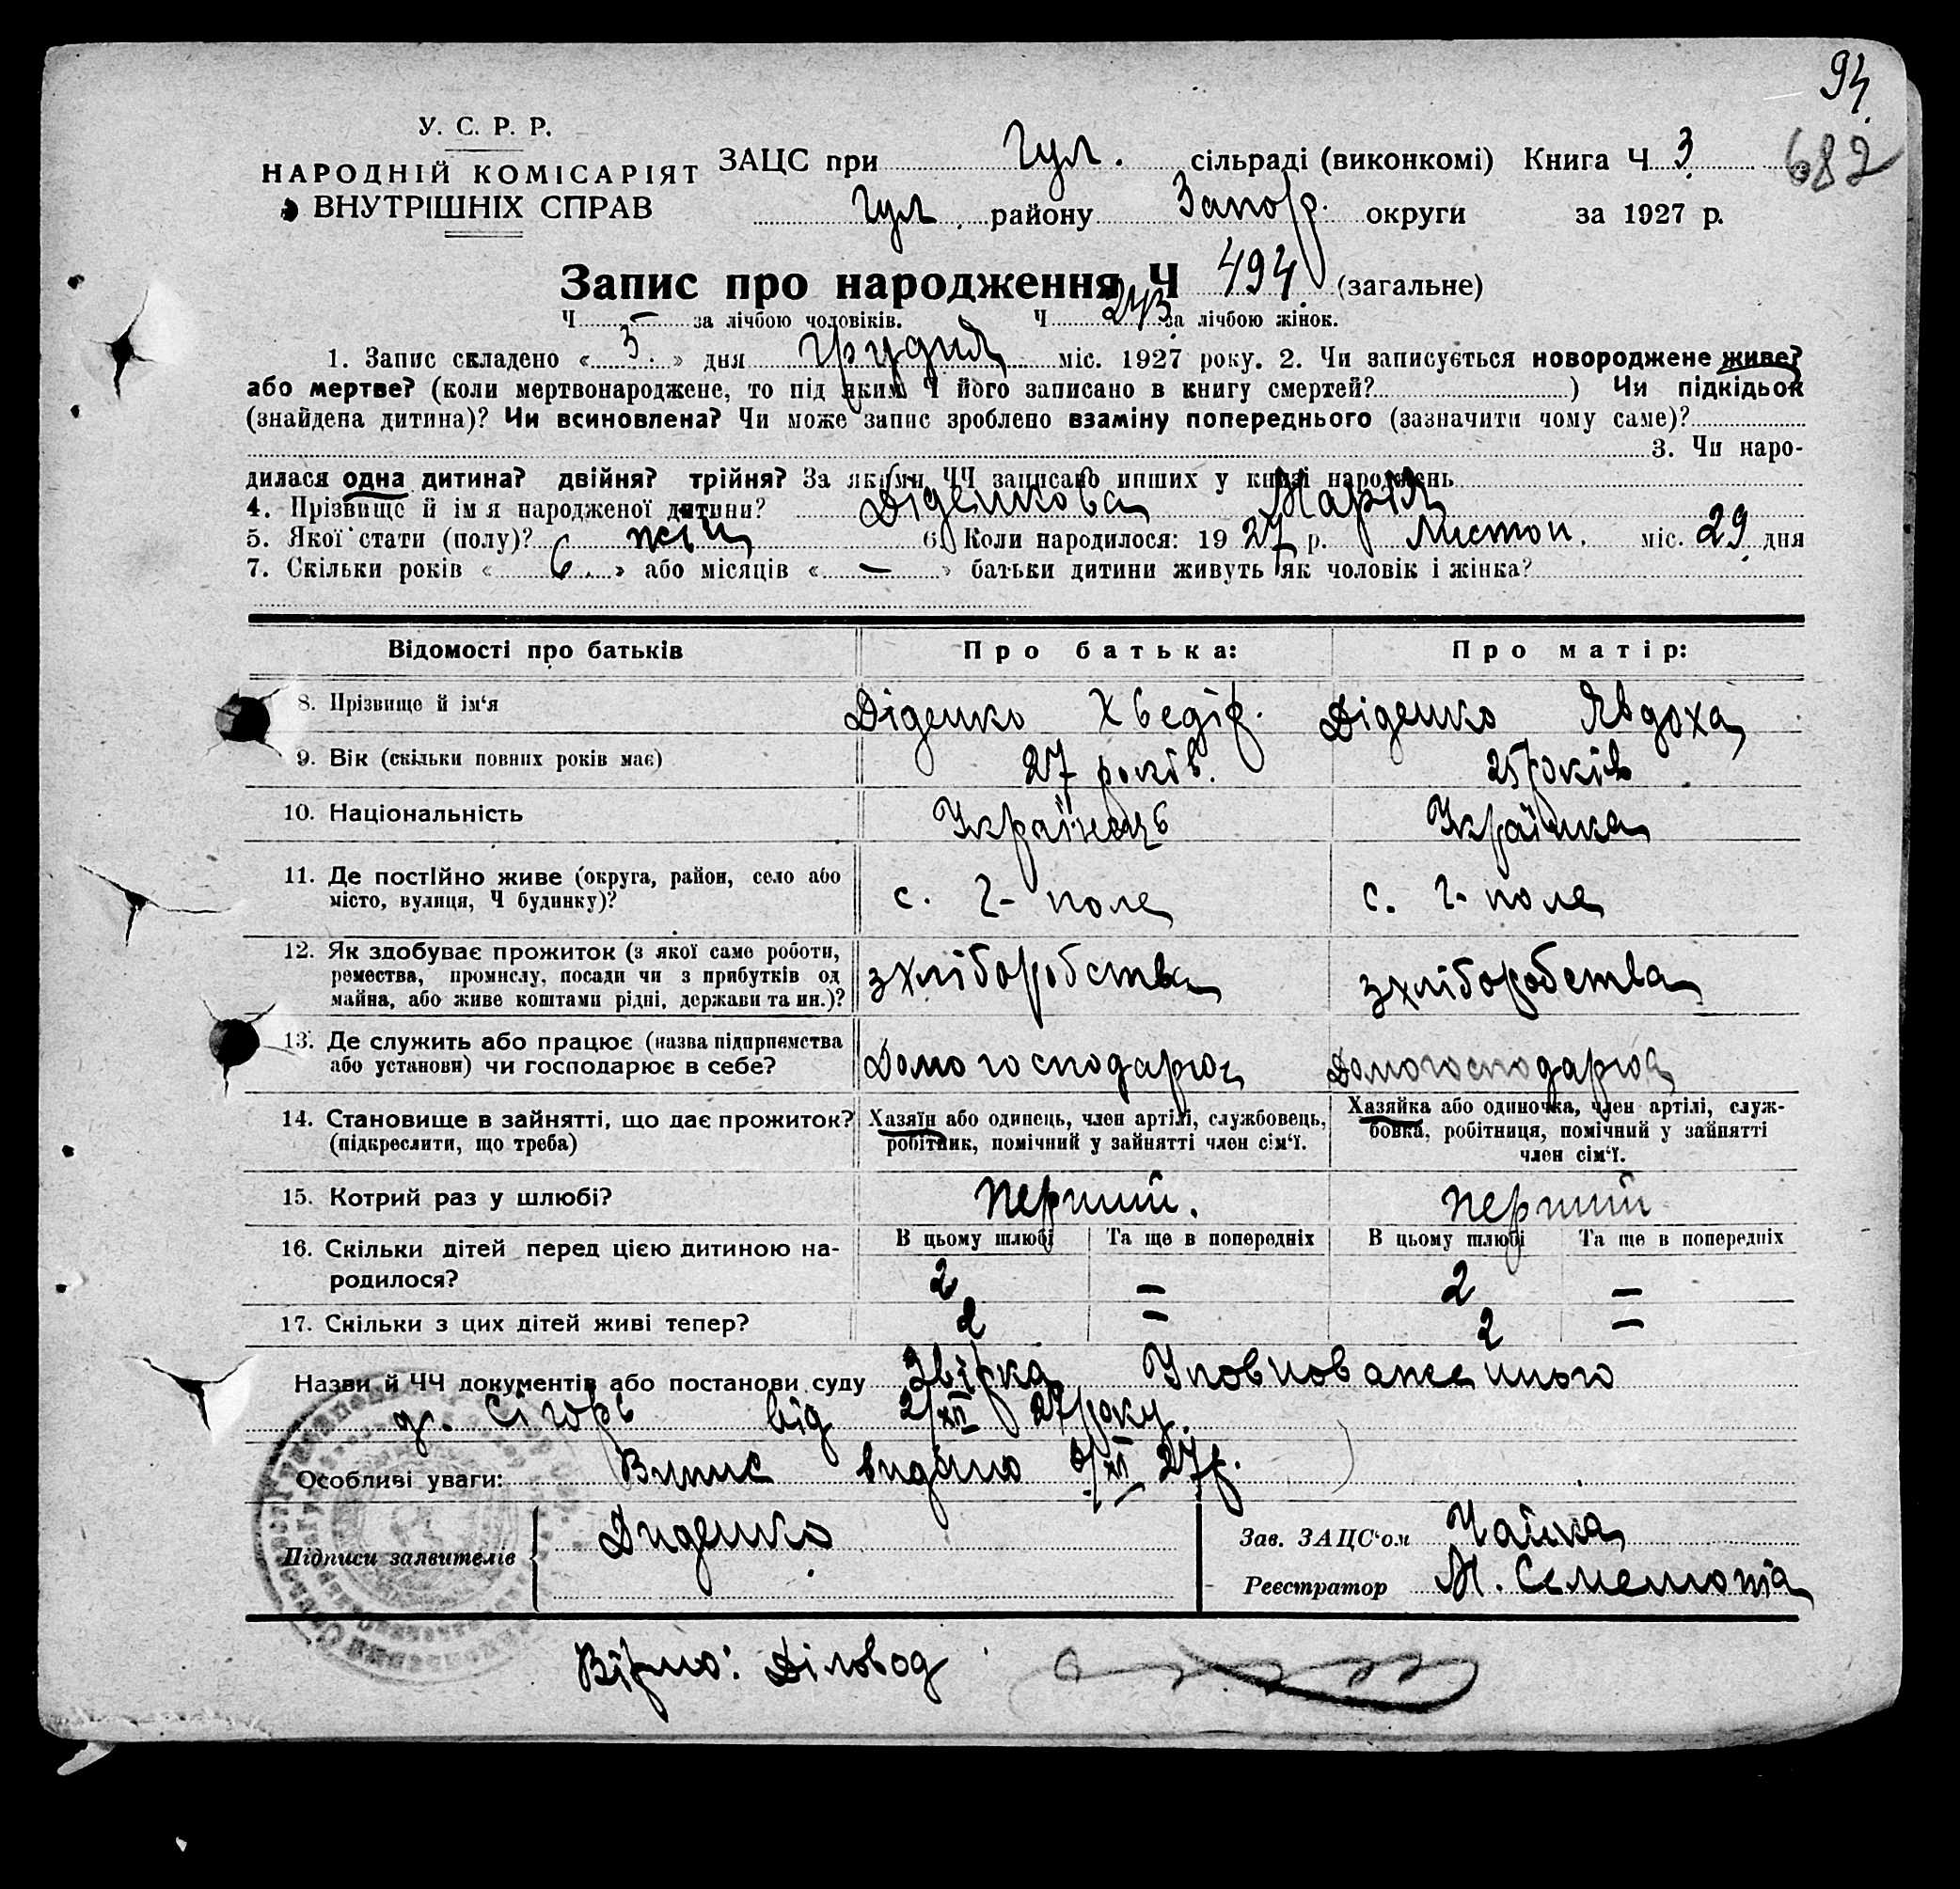 94.
682
У. С. Р. Р.
НАРОДНІЙ КОМІСАРІЯТ
ВНУТРІШНІХ СПРАВ
ЗАЦС при Гул. сільраді (виконкомі) Книга Ч 3
Гул. району Запор. округи за 1927 р.
Запис про народження Ч 494 (загальне)
Ч — за лічбою чоловіків. Ч 243 за лічбою жінок.
1. Запис складено « 3 » дня грудня міс. 1927 року. 2. Чи записується новороджене живе?
або мертве? (коли мертвонароджене, то під яким Ч його записано в книгу смертей? ) Чи підкідьок
(знайдена дитина)? Чи всиновлена? Чи може запис зроблено взаміну попереднього (зазначити чому саме)?
3. Чи наро-
дилася одна дитина? двійня? трійня? За якіми ЧЧ записано инших у книзі народжень
4. Прізвище й ім я народженої дитини? Діденкова Марія
5. Якої стати (полу)? жін 6. Коли народилося: 19 27 р. Листоп. міс. 29 дня
7. Скільки років « 6 » або місяців « — » батьки дитини живуть як чоловік і жінка?
Відомості про батьків Про батька: Про матір:
8. Прізвище й ім'я Діденко Хведір. Діденко Явдоха
9. Вік (скільки повних років має) 27 років. 25 років
10. Національність Українець Українка
11. Де постійно живе (округа, район, село або
місто, вулиця, Ч будинку)? с. Г-поле с. Г-поле
12. Як здобуває прожиток (з якої саме роботи,
ремества, промислу, посади чи з прибутків од
майна, або живе коштами рідні, держави та ин.)? зхліборобства зхліборобства
13. Де служить або працює (назва підпрпємства
або установи) чи господарює в себе? Домогосподарює Домогосподарює
14. Становище в зайнятті, що дає прожиток?
(підкреслити, що треба)
Хазяїн або одинець, член артілі, службовець,
робітник, помічний у зайнятті член сім'ї.
Хазяйка або одиночка, член артілі, служ-
бовка, робітниця, помічний у зайнятті
член сім'ї.
15. Котрий раз у шлюбі? перший. перший
16. Скільки дітей перед цією дитиною на-
родилося?
В цьому шлюбі Та ще в попередніх В цьому шлюбі Та ще в попередніх
2 — 2 —
17. Скільки з цих дітей живі тепер? 2 — 2 —
Назви й ЧЧ документів або постанови суду Звірка Уповноваженного
від 2/XII 27 року.
Особливі уваги: Випис видано 3/XII 27 р.
Підписи заявителів Диденко
Зав. ЗАЦС'ом Чайка
Реєстратор М. Семенюта
Вірно: Діловод